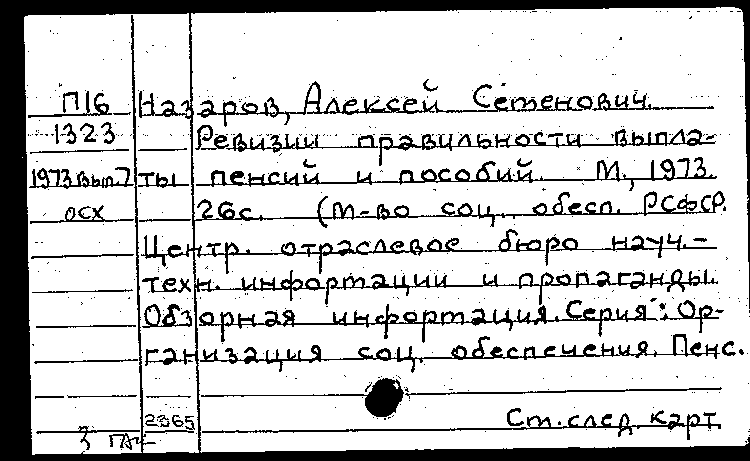 П16 Назаров, Алексей Семенович.
1323 Ревизии правильности выпла-
1973 вып.7 ты пенсий и пособий. М., 1973.
осх 26с. (М-во соц. обесп. РСФСР.
Центр. отраслевое бюро науч.-
техн. информации и пропаганды.
Обзорная информация. Серия: Ор-
ганизация соц. обеспечения. Пенс.
2365 Ст. след. карт.
3